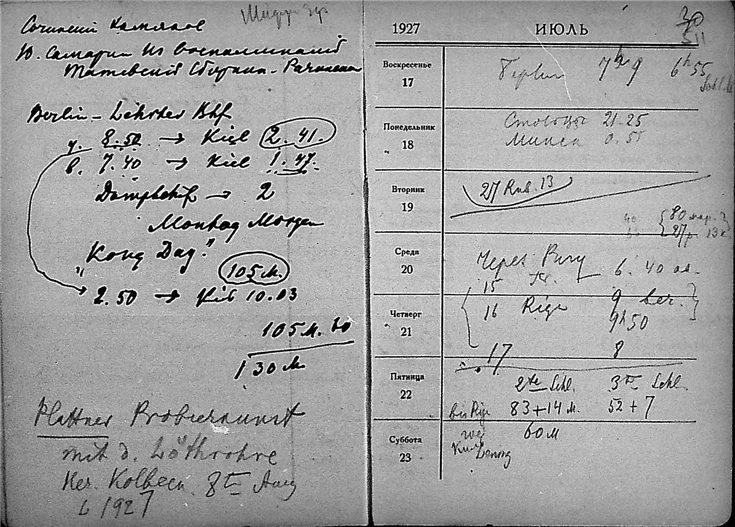 Сочинений Хомякова
Ю. Самарин Из воспоминаний
Татевский Сборник - Рачинский
Berlin - Lehrter Bhf
8.50 → Kiel 2.41.
8. 7.40 → Kiel 1.47
Dampfschif → 2
Montag Morgen
"Kong Dag."
105 M.
2.50 → Kib 10.03
105 M. 30
130 M
Plattner Probierkunst
mit d. Löthrohre
Her. Kolbeck 8te Aufl
L 1927
1927 ИЮЛЬ
30
Воскресенье
17
Берлин 7 h 9 6 h 55
Понедельник
18
Столбцы 21-25
Минск 0.55
Вторник
19
27 Rub. 13
80 мар.
27 р. 13 к
Среда
20
Через Ригу 6.40
15
Четверг
21
16 Riga 9 ber.
9 h 50
17 8
Пятница
22
2te Schl. 3te Schl.
bis Riga 83+14 M. 52+7
Суббота
23
60 M